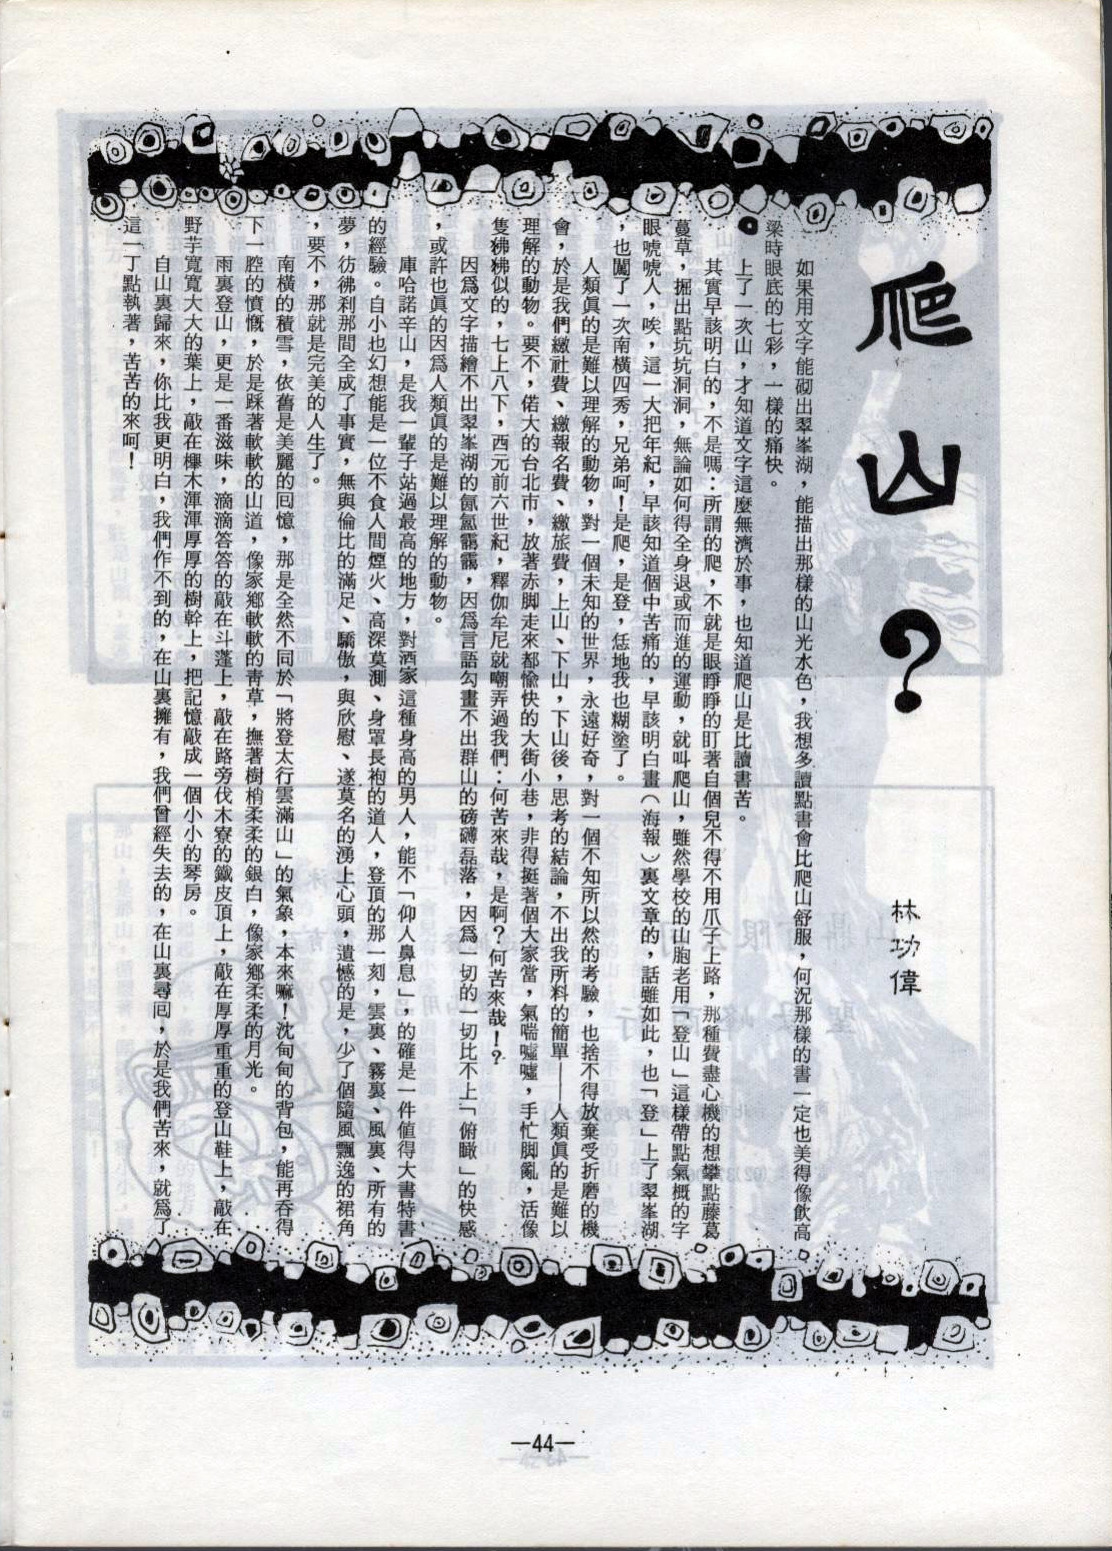 爬山?
林功偉
如果用文字能砌出翠峯湖，能描出那樣的山光水色，我想多讀點書會比爬山舒服，何況那樣的書一定也美得像飲高
粱時眼底的七彩，一樣的痛快。
上了一次山，才知道文字這麼無濟於事，也知道爬山是比讀書苦。
其實早該明白的，不是嗎：所謂的爬，不就是眼睜睜的盯著自個兒不得不用爪子上路，那種費盡心機的想攀點藤葛
蔓草，掘出點坑坑洞洞，無論如何得全身退或而進的運動，就叫爬山，雖然學校的山胞老用「登山」這樣帶點氣概的字
眼唬唬人，唉，這一大把年紀，早該知道個中苦痛的，早該明白畫（海報）裏文章的，話雖如此，也「登」上了翠峯湖
，也闖了一次南橫四秀，兄弟呵！是爬，是登，恁地我也糊塗了。
人類眞的是難以理解的動物，對一個未知的世界，永遠好奇，對一個不知所以然的考驗，也捨不得放棄受折磨的機
會，於是我們繳社費、繳報名費、繳旅費，上山、下山，下山後，思考的結論，不出我所料的簡單——人類眞的是難以
理解的動物。要不，偌大的台北市，放著赤脚走來都愉快的大街小巷，非得挺著個大家當，氣喘噓噓，手忙脚亂，活像
隻狒狒似的，七上八下，西元前六世紀，釋伽牟尼就嘲弄過我們：何苦來哉，是啊？何苦來哉！？
因爲文字描繪不出翠峯湖的氤氳靄靄，因爲言語勾畫不出群山的磅礴磊落，因爲一切的一切比不上「俯瞰」的快感
，或許也眞的因爲人類眞的是難以理解的動物。
庫哈諾辛山，是我一輩子站過最高的地方，對酒家這種身高的男人，能不「仰人鼻息」，的確是一件值得大書特書
的經驗。自小也幻想能是一位不食人間煙火、高深莫測、身罩長袍的道人，登頂的那一刻，雲裏、霧裏、風裏、所有的
夢，彷彿刹那間全成了事實，無與倫比的滿足、驕傲，與欣慰、遂莫名的湧上心頭，遺憾的是，少了個隨風飄逸的裙角
，要不，那就是完美的人生了。
南橫的積雪，依舊是美麗的回憶，那是全然不同於「將登太行雲滿山」的氣象，本來嘛！沈甸甸的背包，能再吞得
下一腔的憤慨，於是踩著軟軟的山道，像家鄉軟軟的靑草，撫著樹梢柔柔的銀白，像家鄉柔柔的月光。
雨裏登山，更是一番滋味，滴滴答答的敲在斗蓬上，敲在路旁伐木寮的鐵皮頂上，敲在厚厚重重的登山鞋上，敲在
野芋寬寬大大的葉上，敲在櫸木渾渾厚厚的樹幹上，把記憶敲成一個小小的琴房。
自山裏歸來，你比我更明白，我們作不到的，在山裏擁有，我們曾經失去的，在山裏尋囘，於是我們苦來，就爲了
這一丁點執著，苦苦的來呵！
—44—